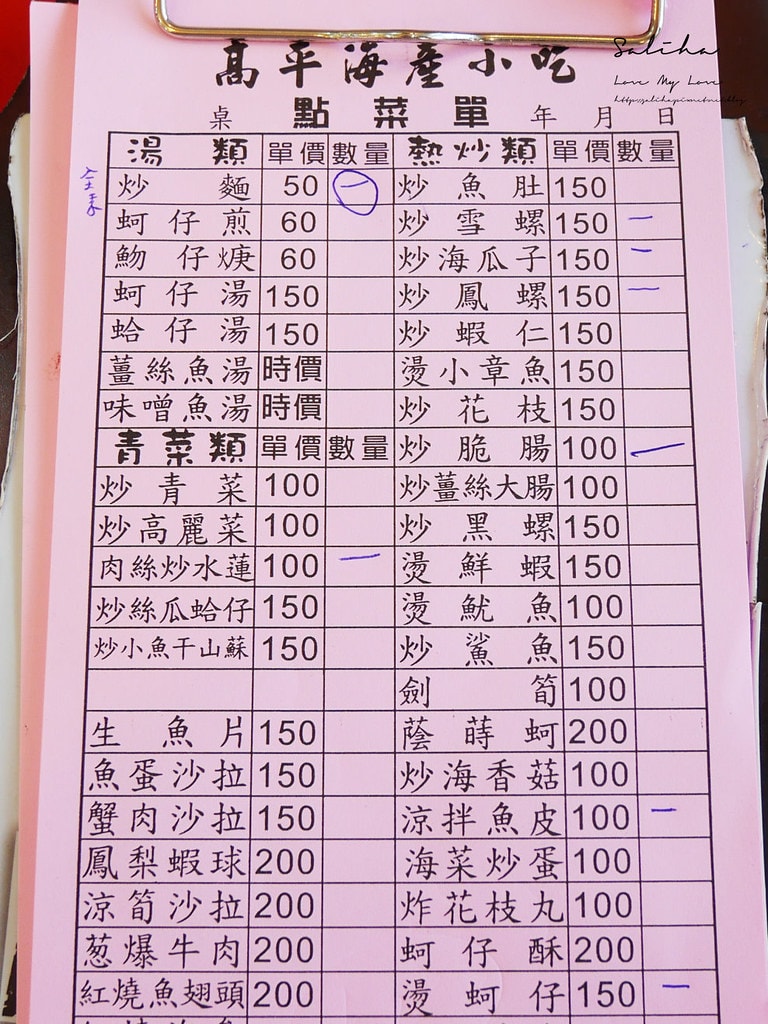 Saliha
Love My Love
高平海產小吃
桌 點菜單 年 月 日
湯類 單價 數量 熱炒類 單價 數量
炒麵 50 一 炒魚肚 150
蚵仔煎 60 炒雪螺 150 一
魩仔焿 60 炒海瓜子 150 一
蚵仔湯 150 炒鳳螺 150 一
蛤仔湯 150 炒蝦仁 150
薑絲魚湯 時價 燙小章魚 150
味噌魚湯 時價 炒花枝 150
青菜類 單價 數量 炒脆腸 100 一
炒青菜 100 炒薑絲大腸 100
炒高麗菜 100 炒黑螺 150
肉絲炒水蓮 100 一 燙鮮蝦 150
炒絲瓜蛤仔 150 燙魷魚 100
炒小魚干山蘇 150 炒鯊魚 150
劍筍 100
生魚片 150 蔭蒔蚵 200
魚蛋沙拉 150 炒海香菇 100
蟹肉沙拉 150 涼拌魚皮 100 一
鳳梨蝦球 200 海菜炒蛋 100
涼筍沙拉 200 炸花枝丸 100
葱爆牛肉 200 蚵仔酥 200
紅燒魚翅頭 200 燙蚵仔 150 一